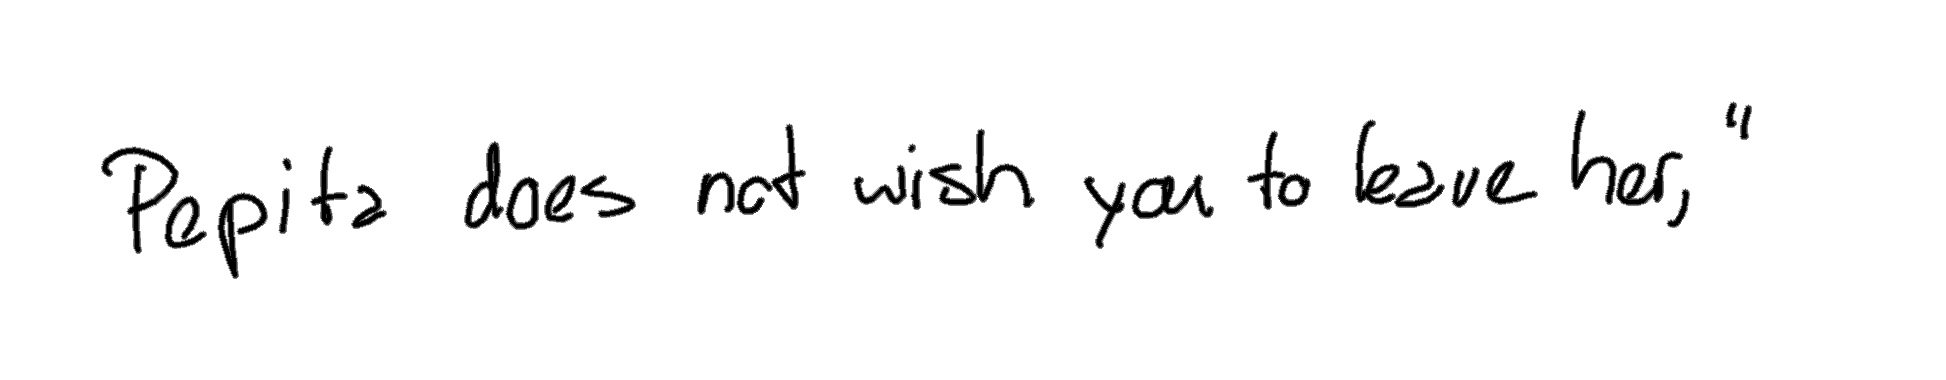 Pepita does not wish you to leave her,"